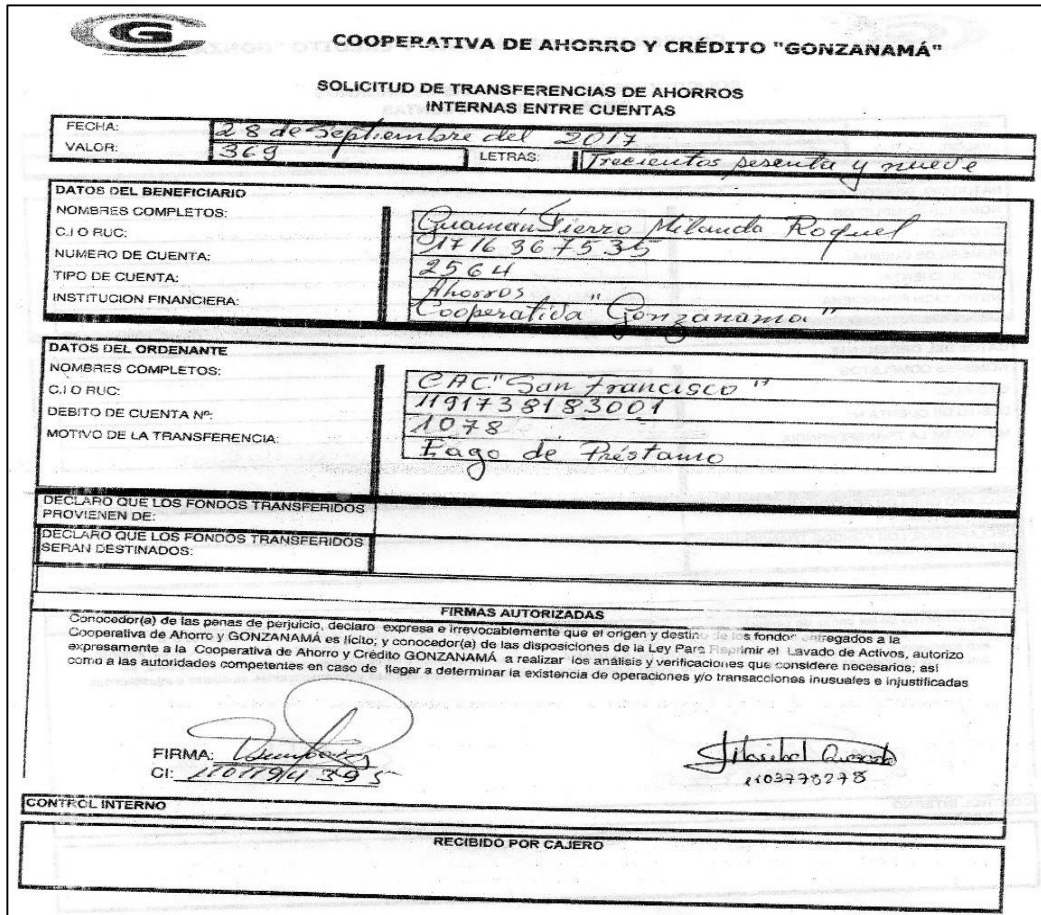 COOPERATIVA DE AHORRO Y CRÉDITO "GONZANAMÁ"
SOLICITUD DE TRANSFERENCIAS DE AHORROS
INTERNAS ENTRE CUENTAS
FECHA: 28 de Septiembre del 2017
VALOR: 369 LETRAS: Trecientos sesenta y nueve
DATOS DEL BENEFICIARIO
NOMBRES COMPLETOS: Guamán Fierro Milanda Roquel
C.I O RUC: 1716367535
NUMERO DE CUENTA: 2564
TIPO DE CUENTA: Ahorros
INSTITUCION FINANCIERA: Cooperatida "Gonzanama"
DATOS DEL ORDENANTE
NOMBRES COMPLETOS: CAC "San Francisco"
C.I O RUC: 1191738183001
DEBITO DE CUENTA Nº: 1078
MOTIVO DE LA TRANSFERENCIA: Pago de Préstamo
DECLARO QUE LOS FONDOS TRANSFERIDOS
PROVIENEN DE:
DECLARO QUE LOS FONDOS TRANSFERIDOS
SERAN DESTINADOS:
FIRMAS AUTORIZADAS
Conocedor(a) de las penas de perjuicio, declaro expresa e irrevocablemente que el origen y destino de los fondos entregados a la
Cooperativa de Ahorro y GONZANAMÁ es lícito; y conocedor(a) de las disposiciones de la Ley Para Reprimir el Lavado de Activos, autorizo
expresamente a la Cooperativa de Ahorro y Crédito GONZANAMÁ a realizar los análisis y verificaciones que considere necesarios; así
como a las autoridades competentes en caso de llegar a determinar la existencia de operaciones y/o transacciones inusuales e injustificadas
FIRMA:
CI: 1101194395
1103778278
CONTROL INTERNO
RECIBIDO POR CAJERO